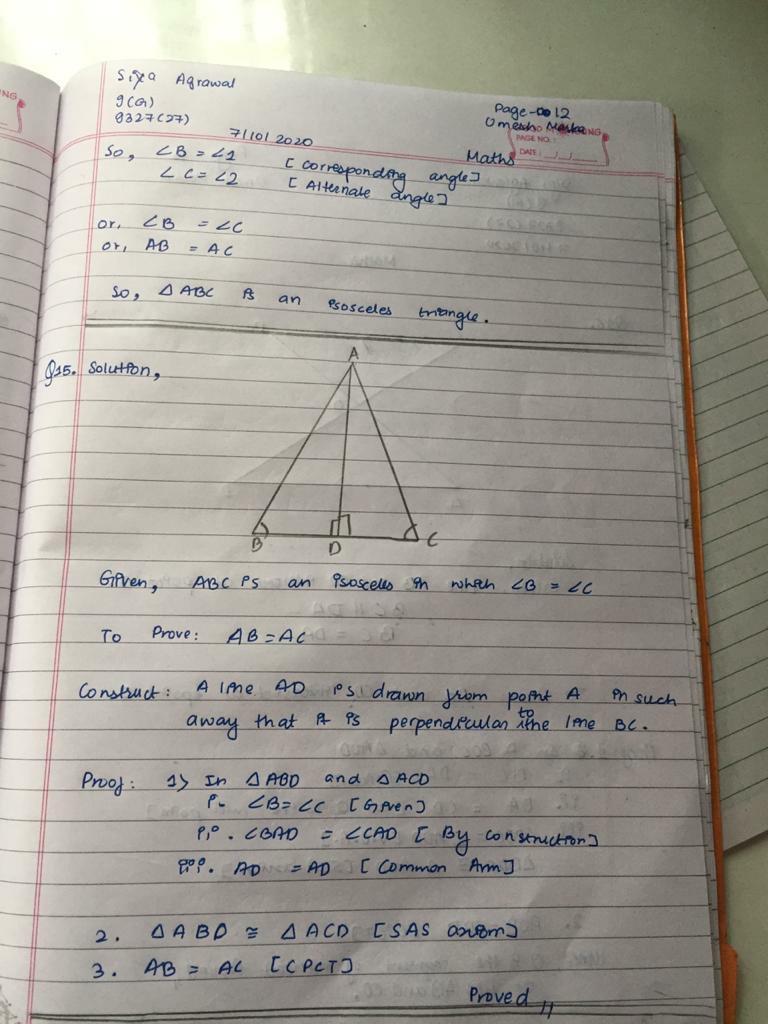 Siya Agrawal
9(G)
9327(27)
Page- 12
Umesh
PAGE NO.:
DATE: / /
7/101 2020
Maths
So, ∠B = ∠1 [Corresponding angle]
∠C = ∠2 [Alternate angle]
or, ∠B = ∠C
or, AB = AC
So, △ABC is an isosceles triangle.
Q15. Solution,
A
B
D
C
Given, ABC is an isosceles in which ∠B = ∠C
To Prove: AB = AC
Construct: A line AD is drawn from point A in such
away that it is perpendicular to the line BC.
Proof: 1) In △ABD and △ACD
i. ∠B = ∠C [Given]
ii. ∠BAD = ∠CAD [By construction]
iii. AD = AD [Common Arm]
2. △ABD ≅ △ACD [SAS axiom]
3. AB = AC [CPCT]
Proved